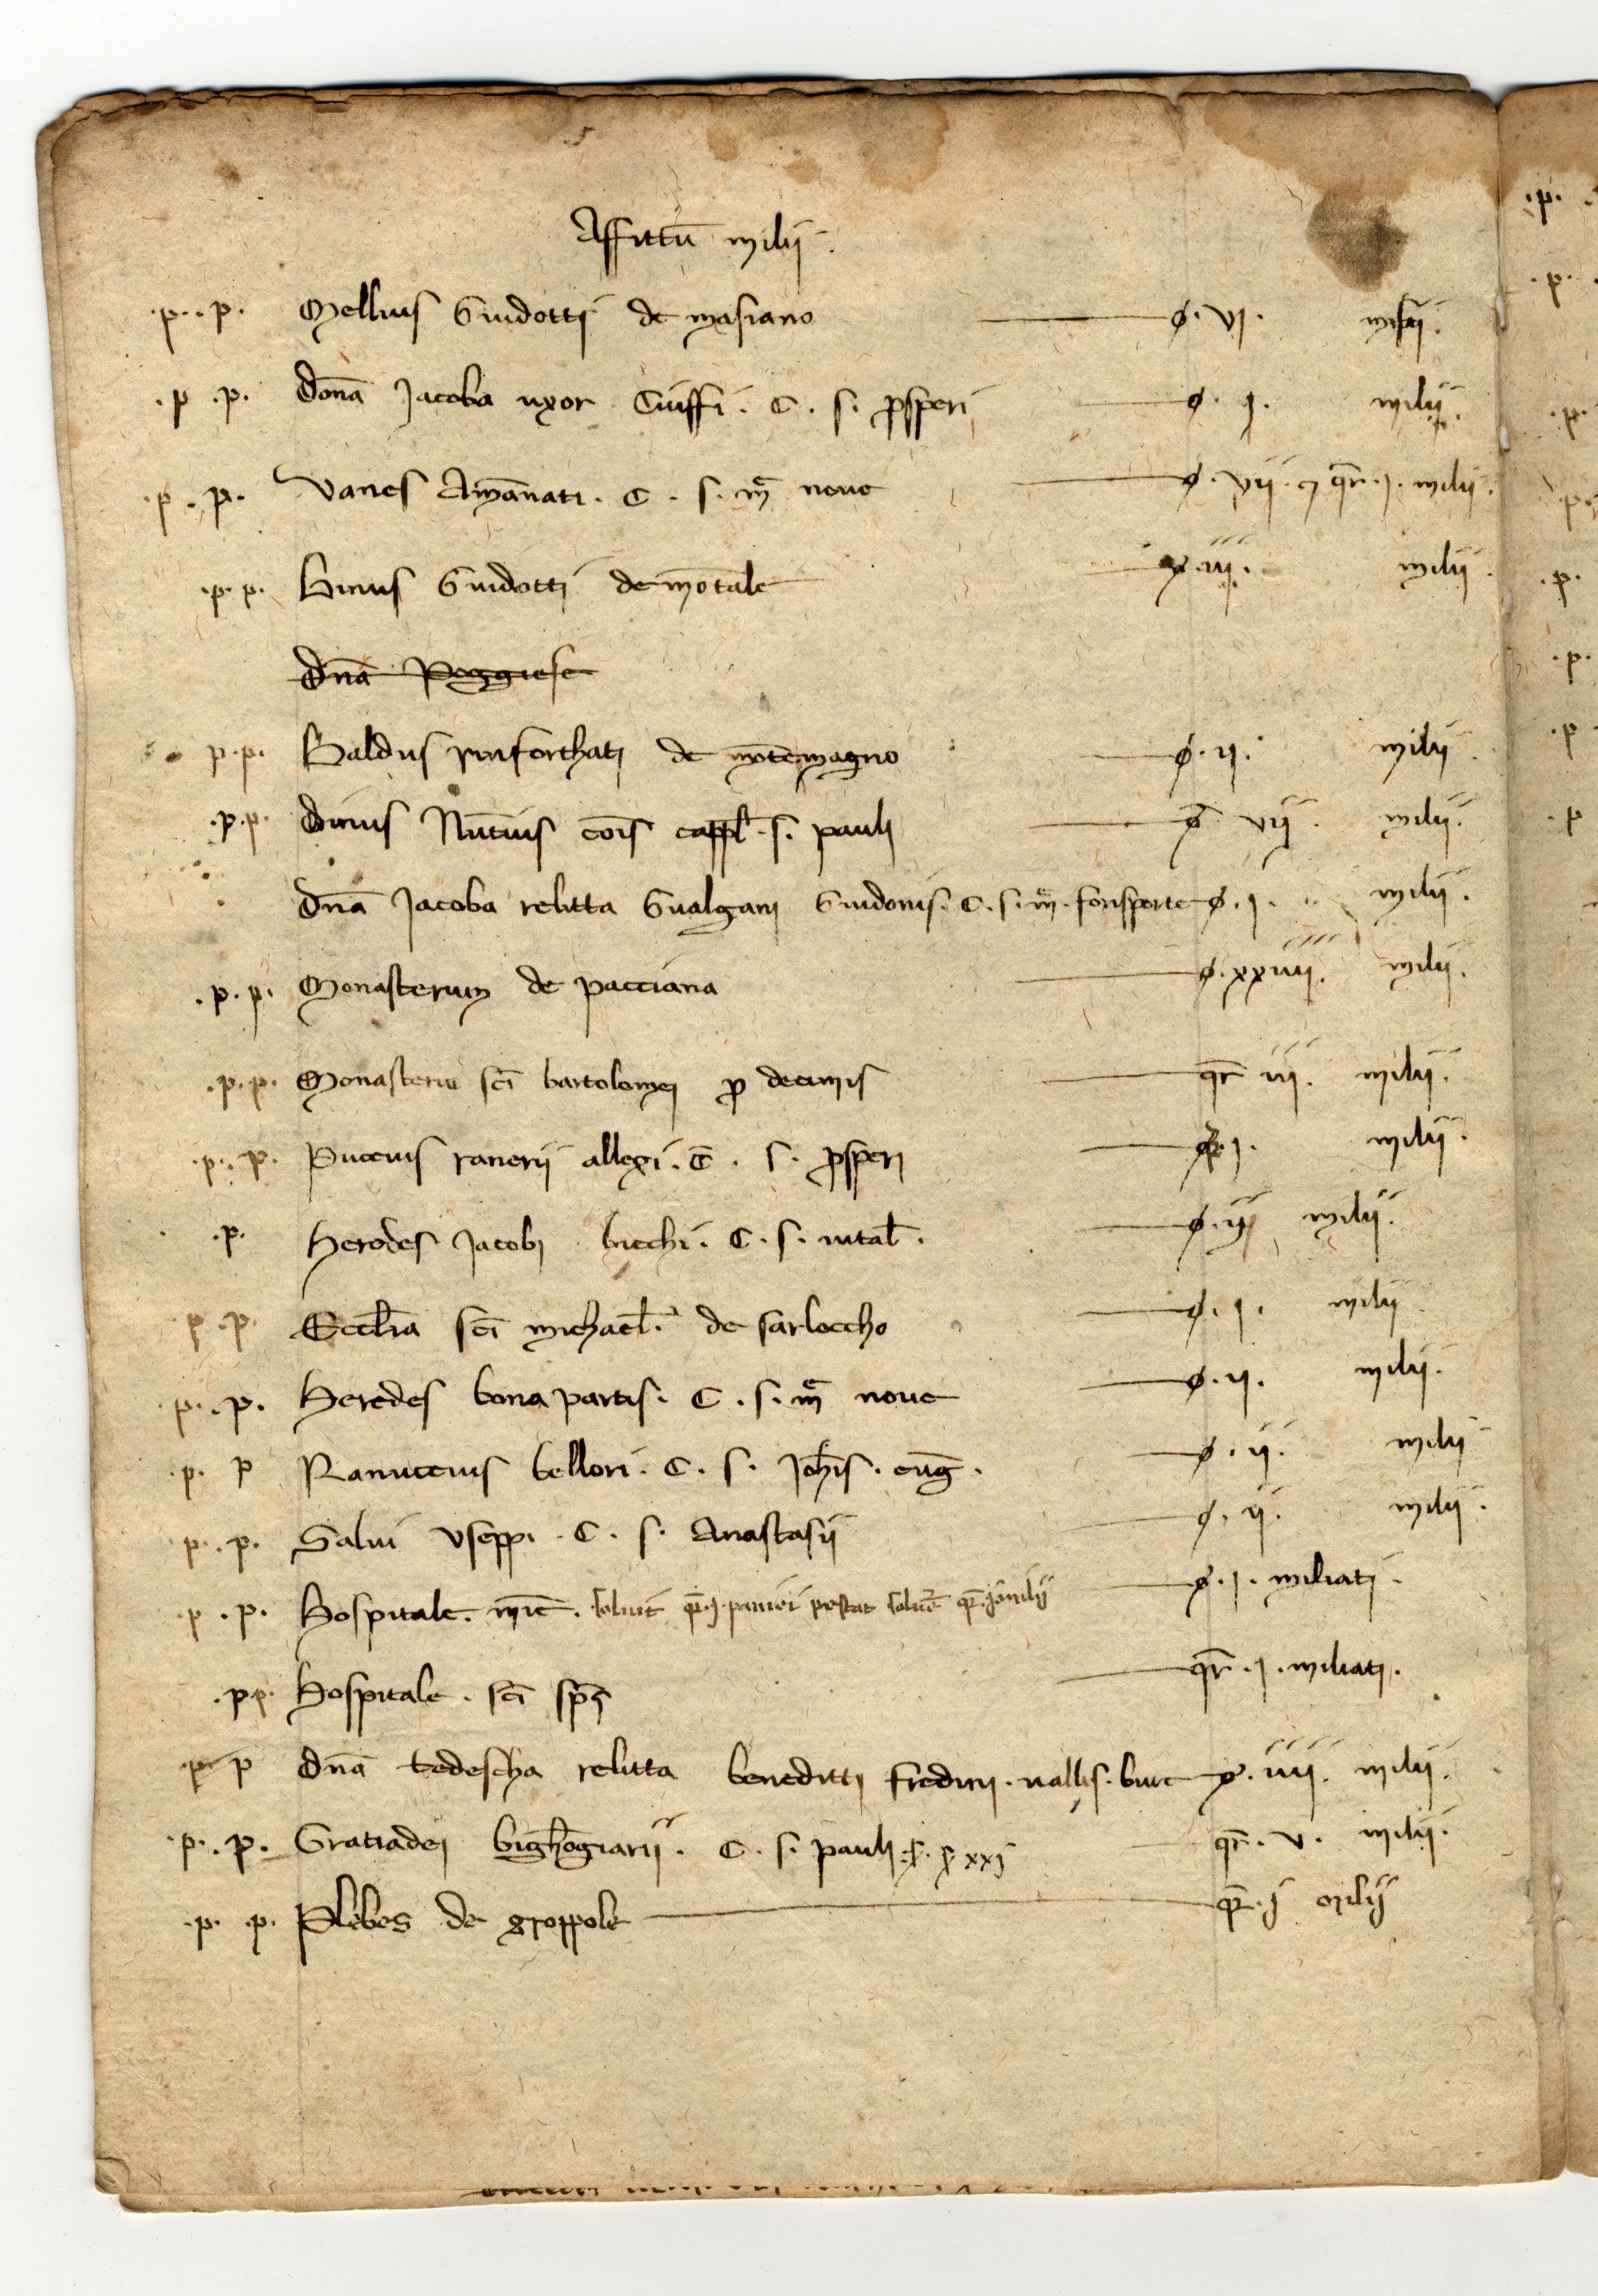 Affittū milij.
.p. .p. Mellius Guidotti de masiano ø. vj. milij.
.p .p. Donā Jacoba uxor Ciuffi. C. s. ꝓsperi ø. j. milij.
.p. p. Vanes Amānati. C. s. mͣ noue ø. vij. ⁊ qr̄. j. milij.
.p. p. Guidotti de mōtale ø. iij. milij.
Dnā Poggiese
p. p. Baldus rinforthati de mōtemagno ø. ij. milij
.p. p. Dinus Nutius cōis cappl̄. s. pauli ø vij. milij.
Dnā Jacoba relitta Gualgani Guidonis. C. s. mͣ. forisporte ø. j. milij.
.p. p. Monasterium de pacciana ø. xxiiij. milij.
.p. p. Monasteriu sci bartolomei ꝓ decimis qr̄ iij. milij.
.p. p. Puccius ranerij allexi. C. s. ꝓsperi j. milij.
.p. Heredes Jacobi bicchi. C. s. uital̄. ø. ij milij.
p p. Eccl̄ia sci michael̄. de sarloccho ø. j. milij
.p. .p. Heredes bona partis. C. s. mͣ noue ø. ij. milij.
.p. p Ranuccius bellori. C. s. Joh̄is. euḡ. ø. ij. milij
p. .p. Salui Useppi. C. s. Anastasij ø. ij. milij.
p .p. Hospitale. mīe. soluit qr̄. j. panici restat soluē qr̄. j milij ø. j. miliati.
.pp. Hospitale. sci sp̄s qr̄. j. miliati.
p p Dnā tedescha relitta beneditti fredirij. uallis. bure ø. iiij. milij.
.p. .p. Gratiadei bighōgiarij. C. s. pauli xxj qr̄. v. milij.
.p. .p. Plebes de groppole qr̄. j milij